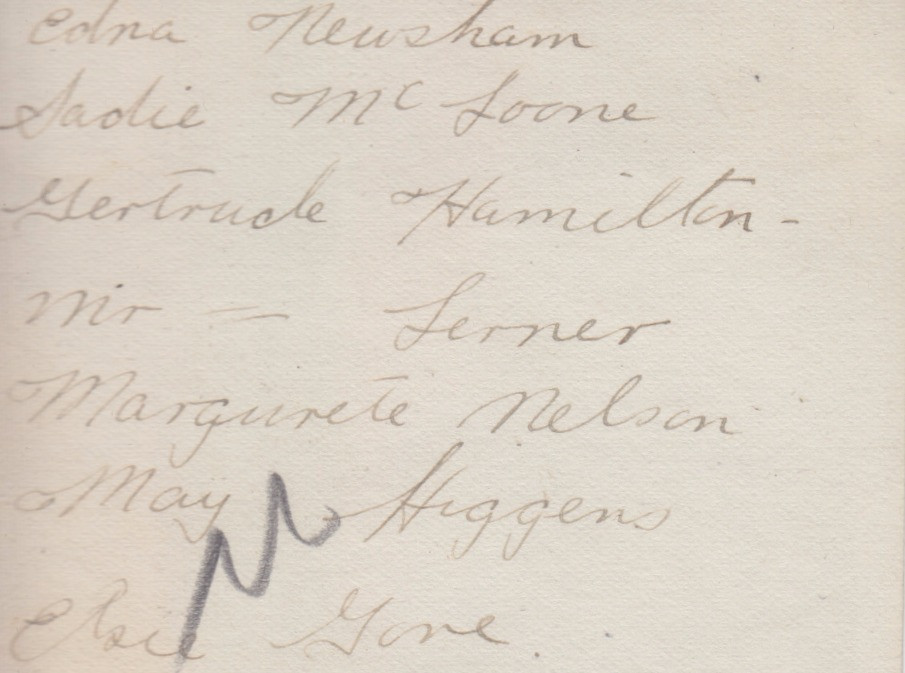 Edna Newsham
Sadie Mc Loone
Gertrude Hamilton -
Mr = Lerner
Margurete Nelson
May Higgens
Elsie Gore